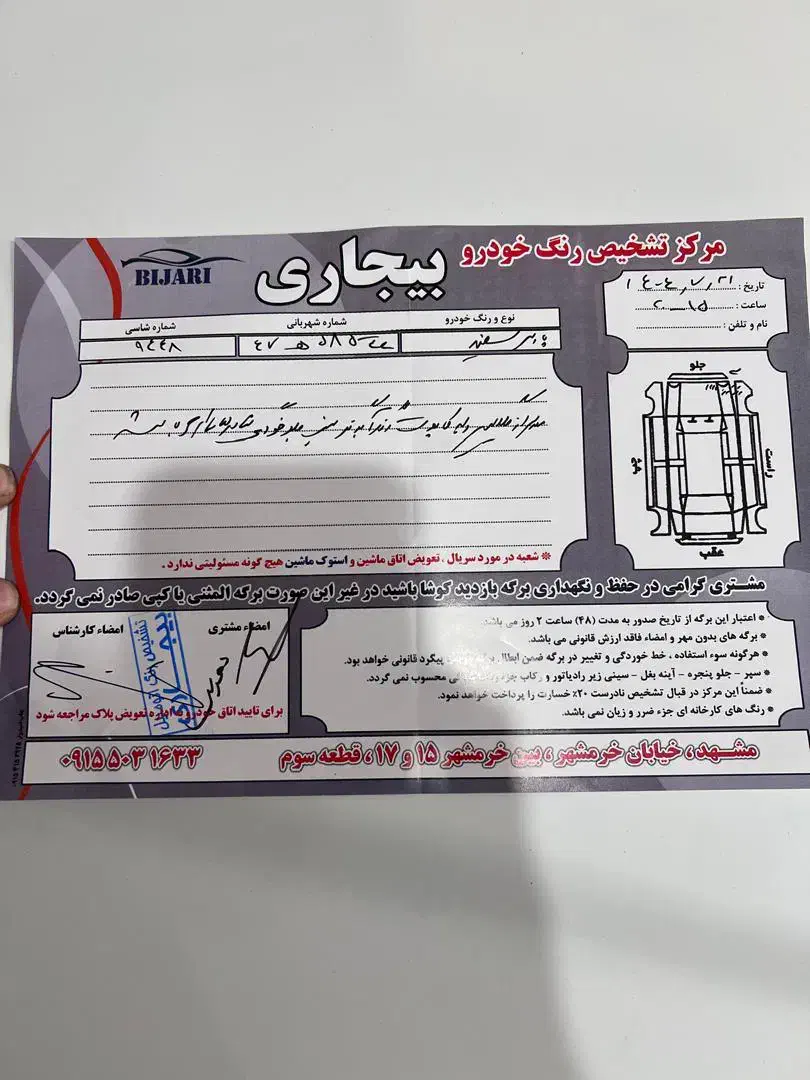 مرکز تشخیص رنگ خودرو بیجاری
BIJARI
تاریخ :
ساعت :
نام و تلفن :
نوع و رنگ خودرو
شماره شهربانی
شماره شاسی
پارس سفید
۹۴۴۸
جلو
راست
چپ
عقب
* شعبه در مورد سریال ، تعویض اتاق ماشین و استوک ماشین هیچ گونه مسئولیتی ندارد .
مشتری گرامی در حفظ و نگهداری برگه بازدید کوشا باشید در غیر این صورت برگه المثنی یا کپی صادر نمی گردد.
* اعتبار این برگه از تاریخ صدور به مدت (۴۸) ساعت ۲ روز می باشد.
* برگه های بدون مهر و امضاء فاقد ارزش قانونی می باشد.
* هرگونه سوء استفاده ، خط خوردگی و تغییر در برگه ضمن ابطال برگه پیگرد قانونی خواهد بود.
* سپر - جلو پنجره - آینه بغل - سینی زیر رادیاتور و رکاب محسوب نمی گردد.
* ضمنا این مرکز در قبال تشخیص نادرست ۲۰٪ خسارت را پرداخت خواهد نمود.
* رنگ های کارخانه ای جزء ضرر و زیان نمی باشد.
امضاء مشتری
امضاء کارشناس
تشخیص رنگ اتومبیل
برای تایید اتاق خودرو به اداره تعویض پلاک مراجعه شود
مشهد ، خیابان خرمشهر ، بین خرمشهر ۱۵ و ۱۷ ، قطعه سوم
۰۹۱۵ ۵۰۳ ۱۶۳۳